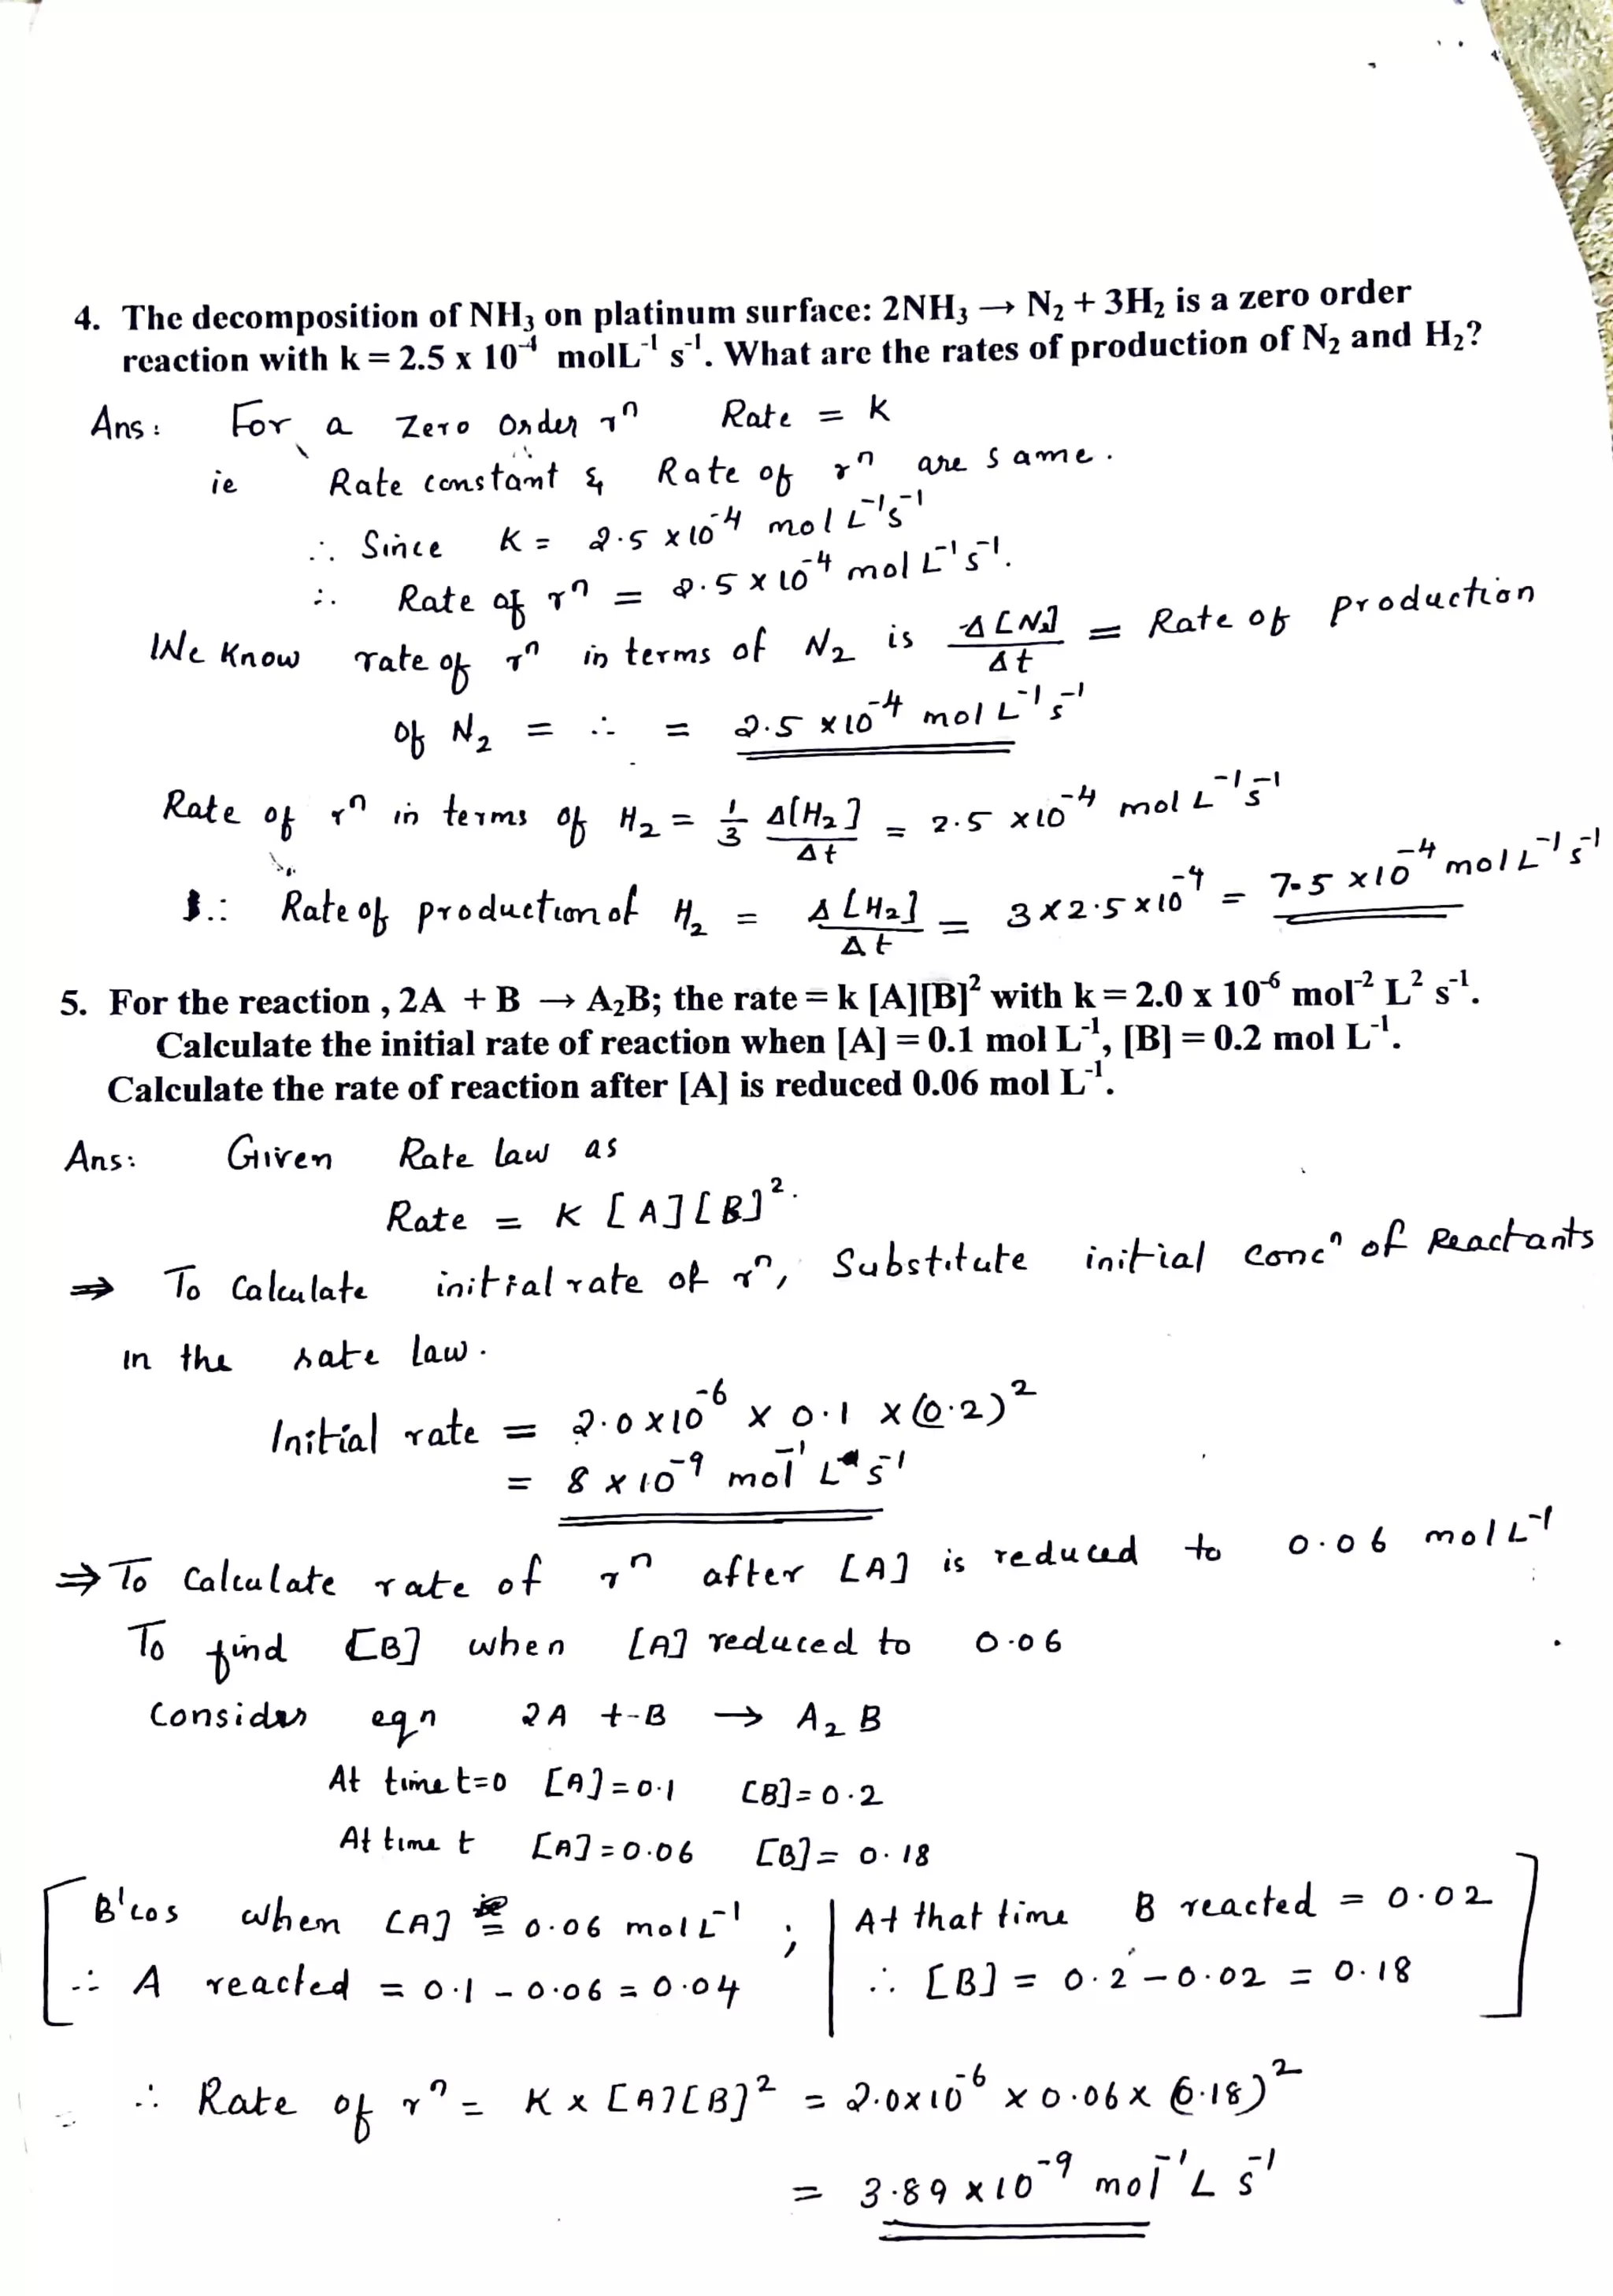 4. The decomposition of NH₃ on platinum surface: 2NH₃ → N₂ + 3H₂ is a zero order
reaction with k = 2.5 x 10⁻⁴ molL⁻¹ s⁻¹. What are the rates of production of N₂ and H₂?
Ans: For a Zero Order rⁿ Rate = K
ie Rate constant & Rate of rⁿ are same.
∴ Since K = 2.5 × 10⁻⁴ mol L⁻¹s⁻¹
∴ Rate of rⁿ = 2.5 × 10⁻⁴ mol L⁻¹s⁻¹.
We Know rate of rⁿ in terms of N₂ is Δ[N₂]/Δt = Rate of production
of N₂ = ∴ = 2.5 × 10⁻⁴ mol L⁻¹s⁻¹
Rate of rⁿ in terms of H₂ = 1/3 Δ[H₂]/Δt = 2.5 × 10⁻⁴ mol L⁻¹s⁻¹
∴ Rate of production of H₂ = Δ[H₂]/Δt = 3×2.5×10⁻⁴ = 7.5 × 10⁻⁴ mol L⁻¹s⁻¹
5. For the reaction , 2A + B → A₂B; the rate = k [A][B]² with k = 2.0 x 10⁻⁶ mol⁻² L² s⁻¹.
Calculate the initial rate of reaction when [A] = 0.1 mol L⁻¹, [B] = 0.2 mol L⁻¹.
Calculate the rate of reaction after [A] is reduced 0.06 mol L⁻¹.
Ans: Given Rate law as
Rate = K [A][B]².
⇒ To Calculate initial rate of rⁿ, Substitute initial concⁿ of Reactants
in the rate law.
Initial rate = 2.0 × 10⁻⁶ × 0.1 × (0.2)²
= 8 × 10⁻⁹ mol⁻¹ L s⁻¹
⇒ To Calculate rate of rⁿ after [A] is reduced to 0.06 mol L⁻¹
To find [B] when [A] reduced to 0.06
Consider eqn 2A + B → A₂B
At time t=0 [A]=0.1 [B]=0.2
At time t [A]=0.06 [B]= 0.18
B'cos when [A] = 0.06 mol L⁻¹ ; At that time B reacted = 0.02
∴ A reacted = 0.1 - 0.06 = 0.04 ∴ [B] = 0.2 - 0.02 = 0.18
∴ Rate of rⁿ = K × [A][B]² = 2.0×10⁻⁶ × 0.06 × (0.18)²
= 3.89 × 10⁻⁹ mol⁻¹ L s⁻¹